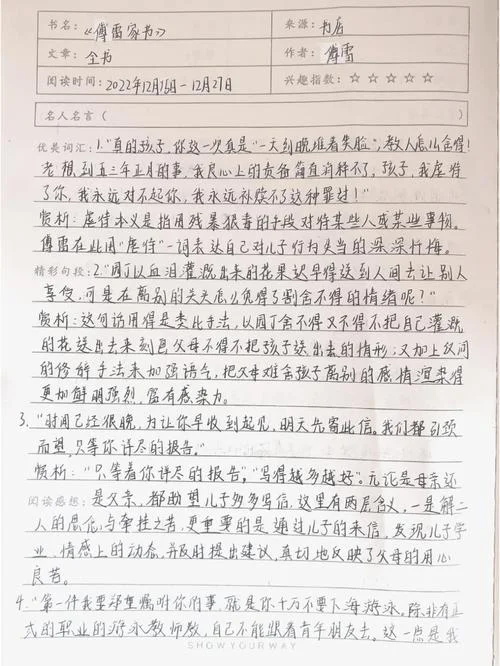 书名:《傅雷家书》
来源:书店
文章:全书
作者:傅雷
阅读时间:2022年12月15日-12月27日
兴趣指数:☆☆☆☆☆
名人名言( )
优美词汇:1."真的孩子,你这一次真是"一天到晚堆着笑脸",教人怎么舍得!
老想到五三年正月的事,我良心上的责备简直消释不了,孩子,我虐待
了你,我永远对不起你,我永远补赎不了这种罪过!"
赏析:虐待本义是指用残暴狠毒的手段对待某些人或某些事物。
傅雷在此用"虐待"一词表达自己对儿子行为失当的深深忏悔。
精彩句段:2."园丁以血泪灌溉出来的花果迟早得送到人间去让别人
享受,可是在离别的关头怎么免得了割舍不得的情绪呢?"
赏析:这句话用得是类比手法,以园丁舍不得又不得不把自己灌溉
的花送出去来刻画父母不得不把孩子送出去的情形;又加上反问
的修辞手法来加强语气,把父母难舍孩子离别的感情渲染得
更加鲜明强烈,富有感染力。
3."时间已经很晚,为让你早收到起见,明天先寄此信。我们都引颈
而望,只等你详尽的报告。"
赏析:"只等着你详尽的报告","写得越多越好"。无论是母亲还
阅读感想:是父亲,都盼望儿子多多写信,这里有两层含义,一是解二
人的思念与牵挂之苦,更重要的是通过儿子的来信,发现儿子学
业、情感上的动态,并及时提出建议,真切地反映了父母的用心
良苦。
4."第一件我要郑重嘱咐你的事,就是你千万不要下海游泳。除非有正
式的职业的游泳教师教,自己不能跟着青年朋友去。这一点是我
SHOW YOUR WAY